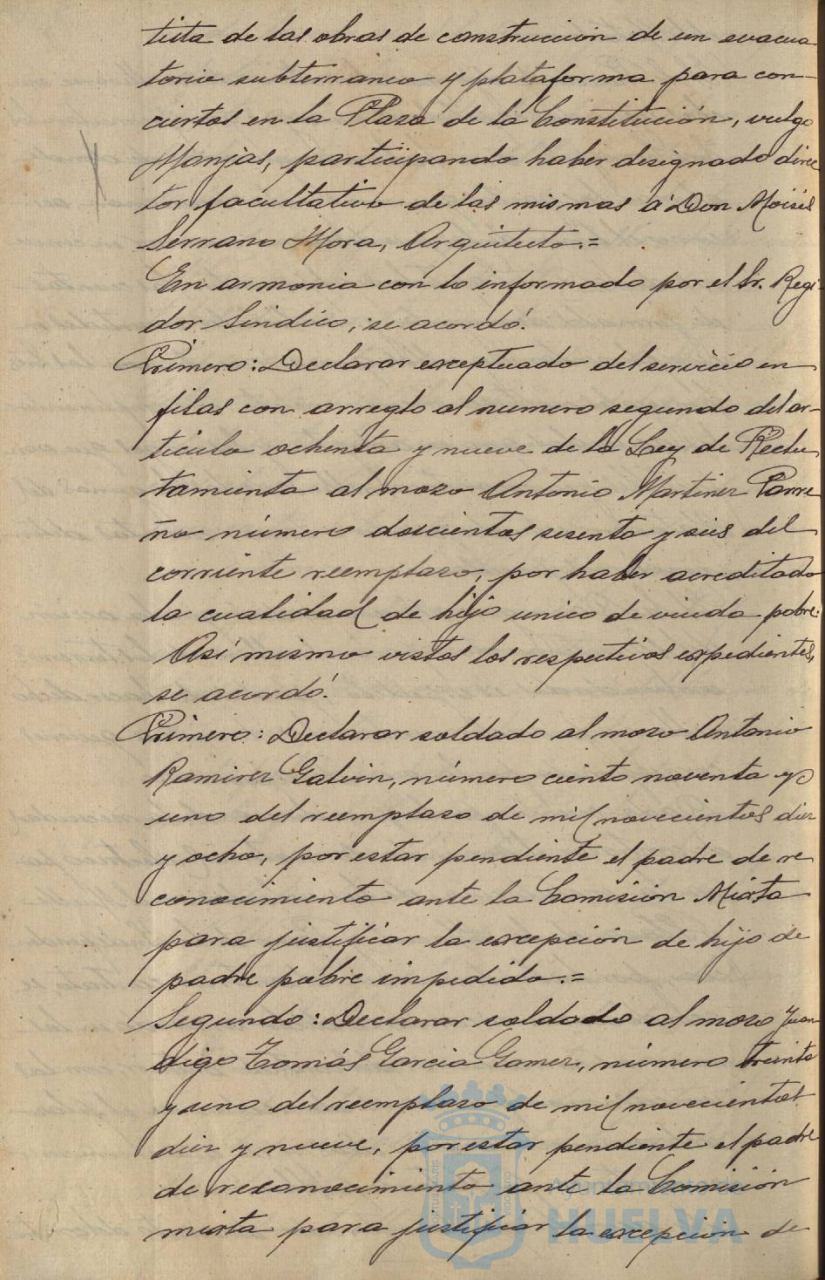 tista de las obras de construcción de un evacua
torio subterraneo y plataforma para con-
ciertos en la Plaza de la Constitución, vulgo
Monjas, participando haber designado direc
tor facultativo de las mismas á Don Moisés
Serrano Mora, Arquitecto.=
En armonia con lo informado por el Sr. Regi-
dor Sindico, se acordó.
Primero: Declarar exceptuado del servicio en
filas con arreglo al numero segundo del ar-
ticulo ochenta y nueve de la Ley de Reclu
tamiento al mozo Antonio Martinez Parre
ño número doscientos sesenta y seis del
corriente reemplazo, por haber acreditado
la cualidad de hijo unico de viuda pobre.
Asi mismo vistos los respectivos expedientes,
se acordó.
Primero: Declarar soldado al mozo Antonio
Ramirez Galvin, número ciento noventa y
uno del reemplazo de mil novecientos diez
y ocho, por estar pendiente el padre de re
conocimiento ante la Comisión Mixta
para justificar la excepción de hijo de
padre pobre impedido.=
Segundo: Declarar soldado al mozo Juan
digo Tomás Garcia Gomez, número treinta
y uno del reemplazo de mil novecientos
diez y nueve, por estar pendiente el padre
de reconocimiento ante la Comisión
mixta para justificar la excepción de
HUELVA